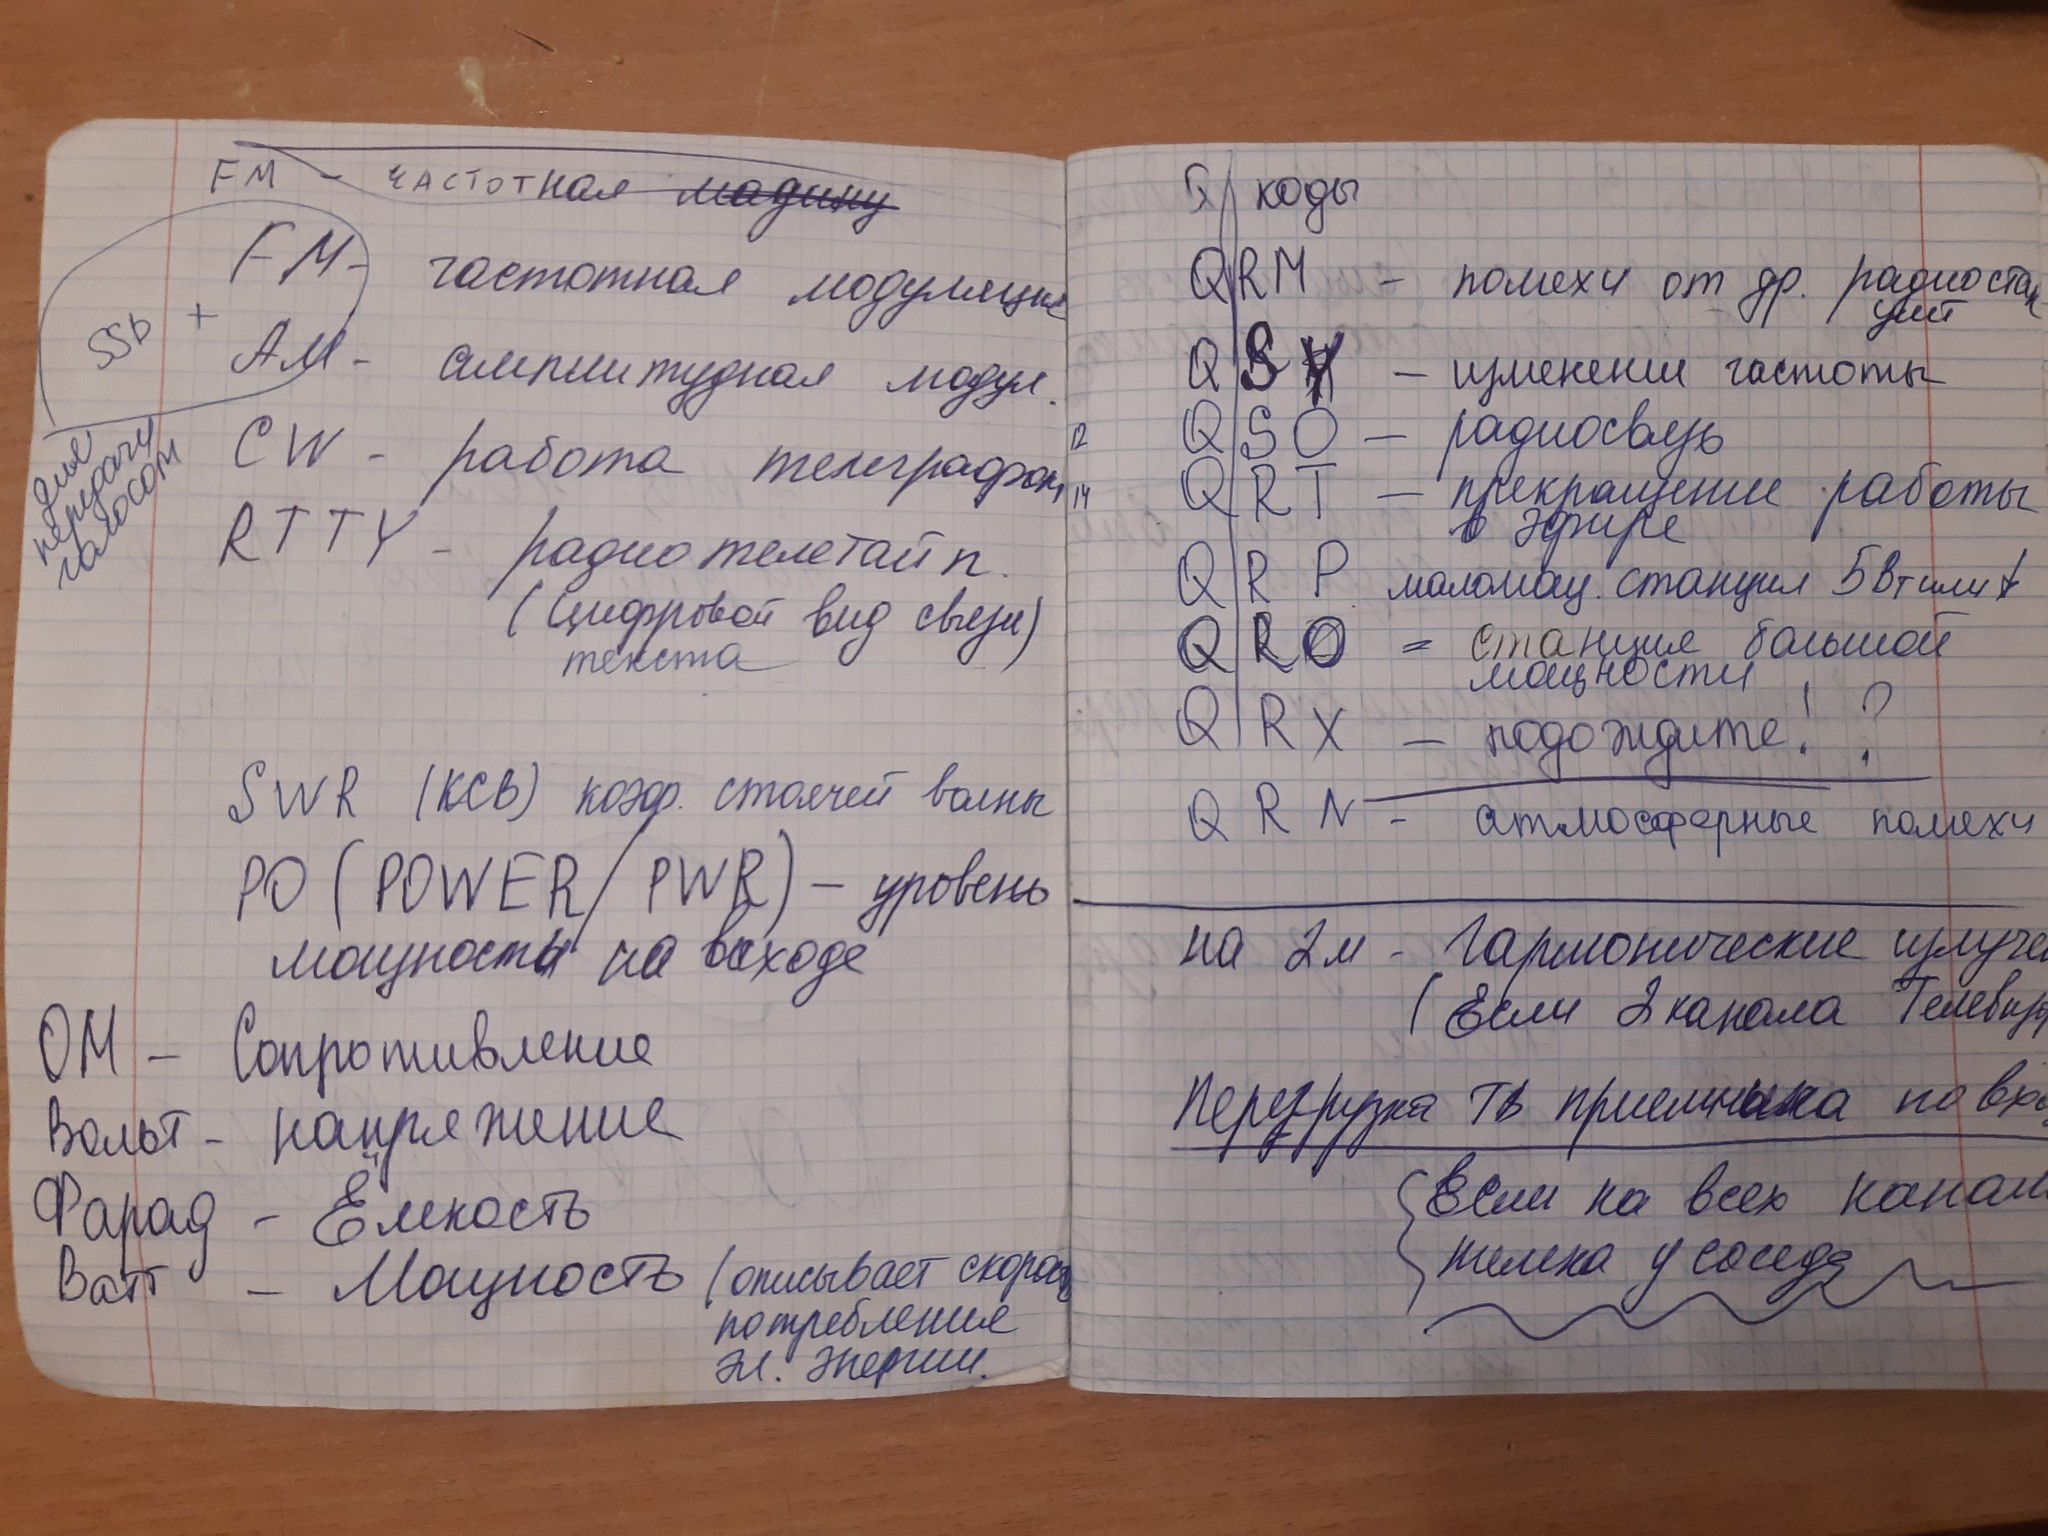 FM - частотная
FM - частотная модуляция
SSb +
АМ - амплитудная модул.
для
передачи
голосом
CW - работа телеграфом
RTTY - радиотелетайп.
(цифровой вид связи)
текста
SWR (КСВ) коэф. стоячей волны
PO (POWER / PWR) - уровень
мощности на выходе
ОМ - Сопротивление
Вольт - напряжение
Фарад - Ёмкость
Ватт - Мощность (описывает скорость
потребления
эл. энергии.
Q коды
QRM - помехи от др. радиостан
ций
QSY - изменение частоты
12 QSO - радиосвязь
14 QRT - прекращение работы
в эфире
QRP маломощ. станция 5Вт или
QRO = станция большой
мощности
QRX - подождите! ?
QRN - атмосферные помехи
на 2м - Гармонические излуче
(Если 2 канала Телевизо
Перегрузка ТВ приемника по вхо
Если на всех канал
телека у соседа